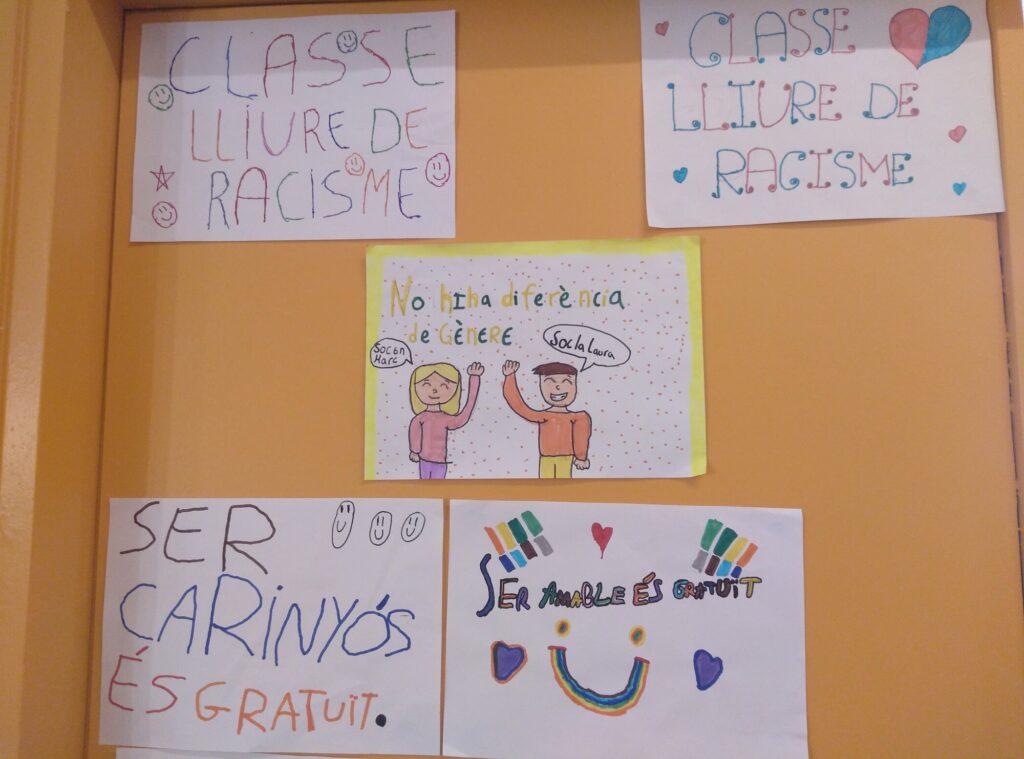 CLASSE
LLIURE DE
RACISME
CLASSE
LLIURE DE
RACISME
No hiha diferència
de GÈNERE
Soc en
Marc
Soc la Laura
SER
CARINYÓS
ÉS GRATUÏT.
SER AMABLE ÉS GRATUÏT